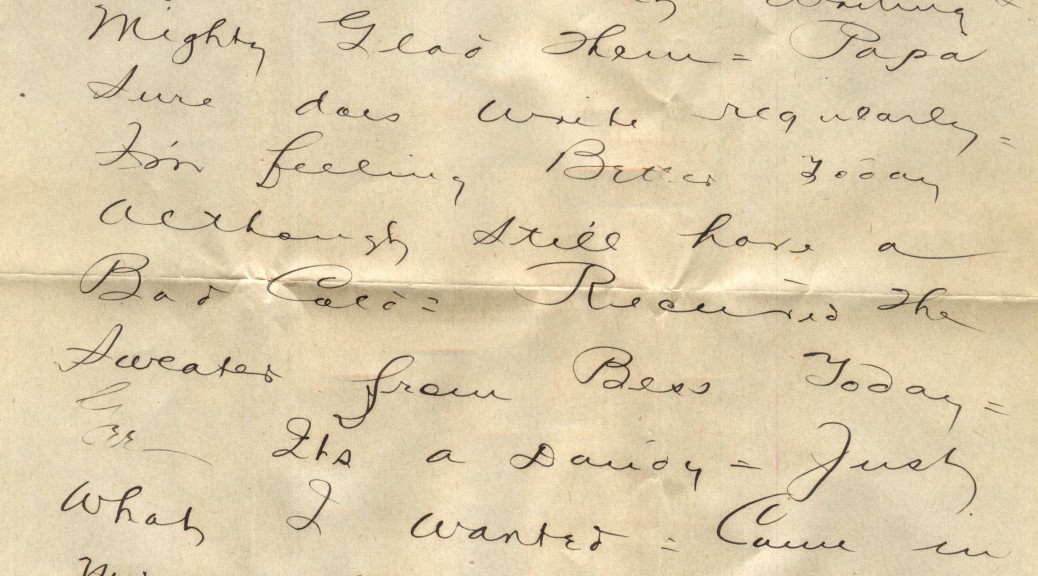 writing
Mighty Glad Them = Papa
Sure does write regularly =
I'm feeling Better Today
Although still have a
Bad Cold = Received The
Sweater from Bess Today =
Its a Dandy = Just
What I wanted = Came in